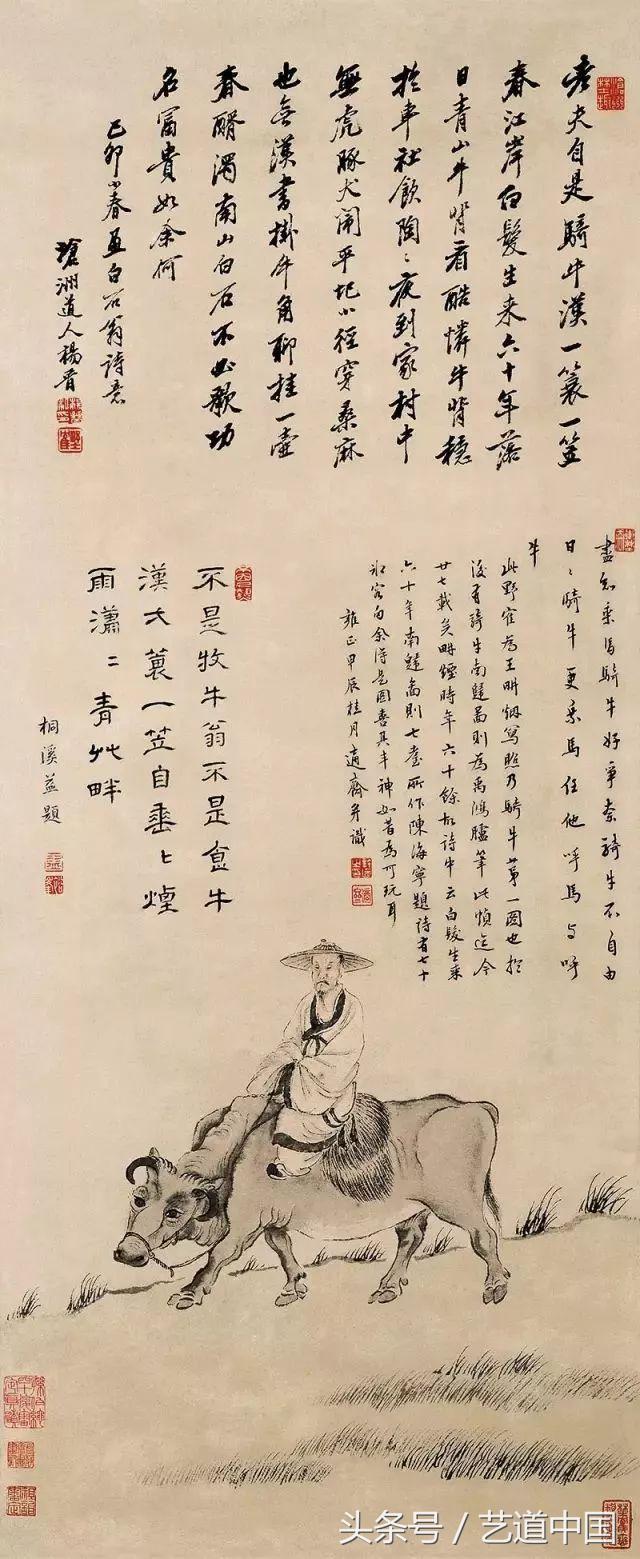 老夫自是騎牛漢一蓑一笠
春江岸白髮生来六十年落
日青山牛背看酷憐牛背穩
於車社飲陶〻夜到家村中
無虎豚犬鬧平圯小徑穿桑麻
也無漢書掛牛角聊挂一壺
春醑濁南山白石不必歌功
名富貴如余何
己卯小春画白石翁詩意
洲道人楊晋
盡知乘馬騎牛好爭奈騎牛不自由
日〻騎牛更乘馬任他呼馬与呼
牛
此野崔為王畊烟寫照乃騎牛第一圖也於
後有騎牛南啚則為禹鴻臚筆此幀迄今
廿七載矣畊煙時年六十餘故詩中云白髮生来
六十年南啚則七耋所作陳海寧題詩有七十
客向余得是圖喜其丰神如昔為可玩耳
雍正甲辰桂月適齋并識
不是牧牛翁不是食牛
漢一笠自垂〻煙
雨瀟〻青艸畔
桐溪益題
头条号 / 艺道中国